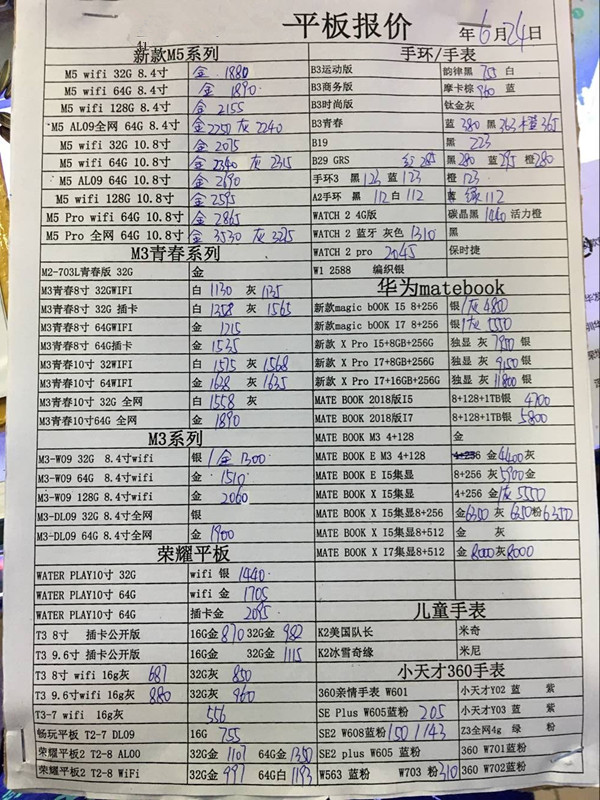 平板报价 年6月24日
新款M5系列
M5 wifi 32G 8.4寸 金 1880
M5 wifi 64G 8.4寸 金 1890
M5 wifi 128G 8.4寸 金 2155
M5 AL09全网 64G 8.4寸 金 2250 灰 2240
M5 wifi 32G 10.8寸 金 2075
M5 wifi 64G 10.8寸 金 2340 灰 2315
M5 AL09 64G 10.8寸 金 2690
M5 wifi 128G 10.8寸 金 2595
M5 Pro wifi 64G 10.8寸 金 2865
M5 Pro 全网 64G 10.8寸 金 3530 灰 3225
M3青春系列
M2-703L青春版 32G 金
M3青春8寸 32GWIFI 白 1130 灰 1135
M3青春8寸 32G 插卡 白 1358 灰 1565
M3青春8寸 64GWIFI 金 1215
M3青春8寸 64G插卡 金 1535
M3青春10寸 32WIFI 白 1575 灰 1568
M3青春10寸 64WIFI 金 1628 灰 1635
M3青春10寸 32G 全网 白 1558 灰
M3青春10寸64G 全网 金 1890
M3系列
M3-W09 32G 8.4寸wifi 银/金 1300
M3-W09 64G 8.4寸wifi 金 1510
M3-W09 128G 8.4寸wifi 金 2060
M3-DL09 32G 8.4寸全网 银
M3-DL09 64G 8.4寸全网 金 1900
荣耀平板
WATER PLAY10寸 32G wifi 银 1440
WATER PLAY10寸 64G wifi 金 1705
WATER PLAY10寸 64G 插卡金 2095
T3 8寸 插卡公开版 16G金 870 32G金 982
T3 9.6寸 插卡公开版 16G金 32G金 1115
T3 8寸 wifi 16g灰 687 32G灰 850
T3 9.6寸wifi 16g灰 880 32G灰 960
T3-7 wifi 16g灰 556
畅玩平板 T2-7 DL09 16G 755
荣耀平板2 T2-8 AL00 32G金 1107 64G金 1350
荣耀平板2 T2-8 WiFi 32G金 997 64G白 1193
手环/手表
B3运动版 韵律黑 755 白
B3商务版 摩卡棕 960 蓝
B3时尚版 钛金灰
B3青春 蓝 380 黑 363 橙 365
B19 黑 223
B29 GRS 红 285 黑 280 蓝 295 橙 280
手环3 黑 123 蓝 123 橙 123
A2手环 黑 112 白 112 绿 112
WATCH 2 4G版 碳晶黑 1440 活力橙
WATCH 2 蓝牙 灰色 1310 黑
WATCH 2 pro 2045 保时捷
W1 2588 编织银
华为matebook
新款magic bOOK I5 8+256 银/灰 4850
新款magic bOOK I7 8+256 银/灰 5550
新款 X Pro I5+8GB+256G 独显 灰 7950 银
新款 X Pro I7+8GB+256G 独显 灰 9150 银
新款 X Pro I7+16GB+256G 独显 灰 11800 银
MATE BOOK 2018版I5 8+128+1TB银 4700
MATE BOOK 2018版I7 8+128+1TB银 5800
MATE BOOK M3 4+128 金
MATE BOOK E M3 4+128 金 4400 灰
MATE BOOK E I5集显 8+256 灰 5900 金
MATE BOOK X I5集显 4+256 金/灰 5550
MATE BOOK X I5集显8+256 金 6350 灰 6350 粉 6350
MATE BOOK X I5集显8+512 金 灰
MATE BOOK X I7集显8+512 金 8000 灰 8000
儿童手表
K2美国队长 米奇
K2冰雪奇缘 米尼
小天才360手表
360亲情手表 W601 小天才Y02 蓝 紫
SE Plus W605蓝粉 205 小天才Y03 蓝 紫
SE2 W608蓝粉 150/143 Z3全网4g 绿 粉
SE2 plus W605 蓝粉 360 W701蓝粉
W563 蓝粉 W703 粉 310 360 W702蓝粉